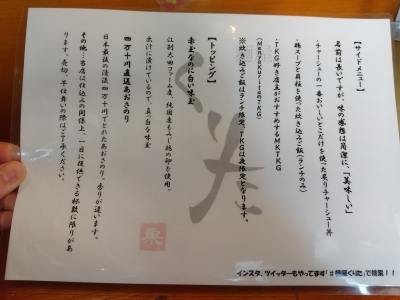 【サイドメニュー】
名前は長いですが、味の感想は簡潔に、「美味しい」
・チャーシューの一番おいしいとこだけを使った炙りチャーシュー丼
・鶏スープと貝柱を使った炊き込みご飯(ランチのみ)
・TKG好き店主がおすすめするMKTKG
(MenyaKuritaのTKG)
※炊き込みご飯はランチ限定、TKGは夜限定となります。
【トッピング】
黄玉なのに白い味玉
江別太田ファーム産、純国産もみじ鶏の卵を使用。
出汁に漬けているので、真っ白な味玉
四万十川直送あおさのり
日本最後の清流 四万十川でとれたあおさのり。香りが違います。
その他:当店は仕込みの関係上、一日に提供できる杯数に限りがあ
ります。売切、早仕舞いの際はご了承ください。
栗
インスタ、ツイッターもやってます「#麺屋くりた」で検索!!